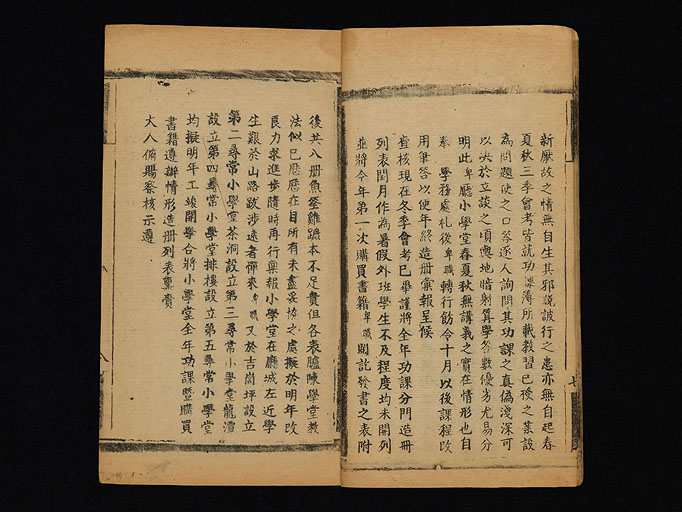 新厭故之情無自生其邪說詖行之患亦無自起春
夏秋三季會考皆就功課簿所載教習已授之業設
為問題使之口答逐人詢問其功課之真偽淺深可
以決於立談之頃輿地暗射算學答數優劣尤易分
明此卑廳小學堂春夏秋無講義之實在情形也自
奉 學務處札後卑職轉行飭令十月以後課程改
用筆答以便年終造冊彙報呈候
查核現在冬季會考已畢謹將全年功課分門造冊
列表閏月作為暑假外班學生不及程度均未開列
並將今年第一次購買書籍卑職開託發書之表附
後共八冊魚蛩雞蹠本不足貴但各表臚陳學堂教
法似已歷歷在目所有未盡妥協之處擬於明年改
良力求進步隨時再行稟報小學堂在廳城左近學
生艱於山路跋涉遠者憚來卑職又於吉崗坪設立
第二尋常小學堂茶洞設立第三尋常小學堂龍潭
設立第四尋常小學堂排樓設立第五尋常小學堂
均擬明年工竣開學合將小學堂全年功課暨購買
書籍遵辦情形造冊列表稟賫
大人俯賜察核示遵